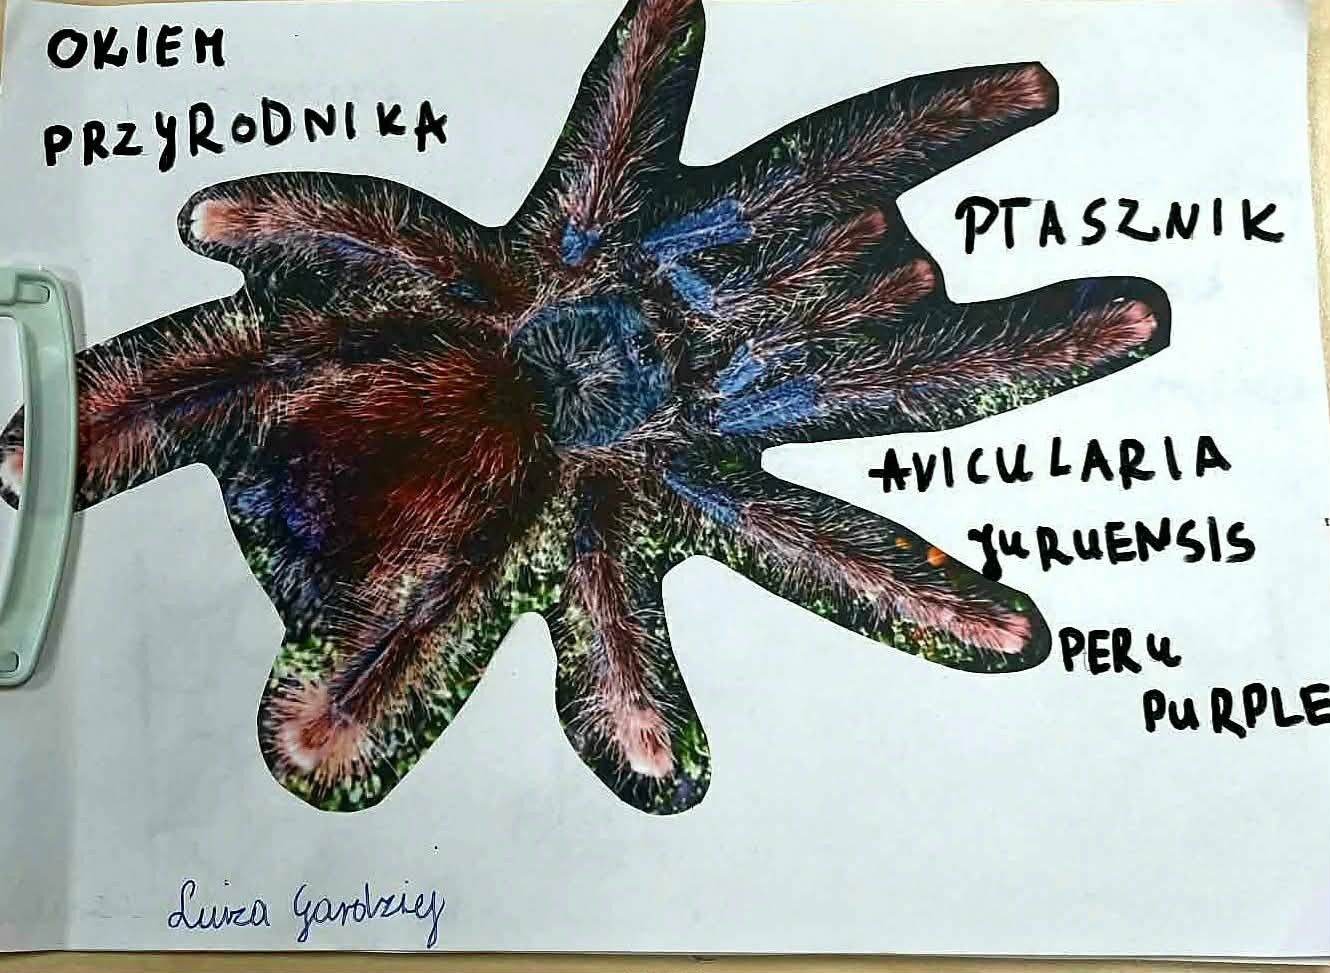 OKIEM
PRZYRODNIKA
PTASZNIK
AVICULARIA
JURUENSIS
PERU
PURPLE
Luiza Gardziej